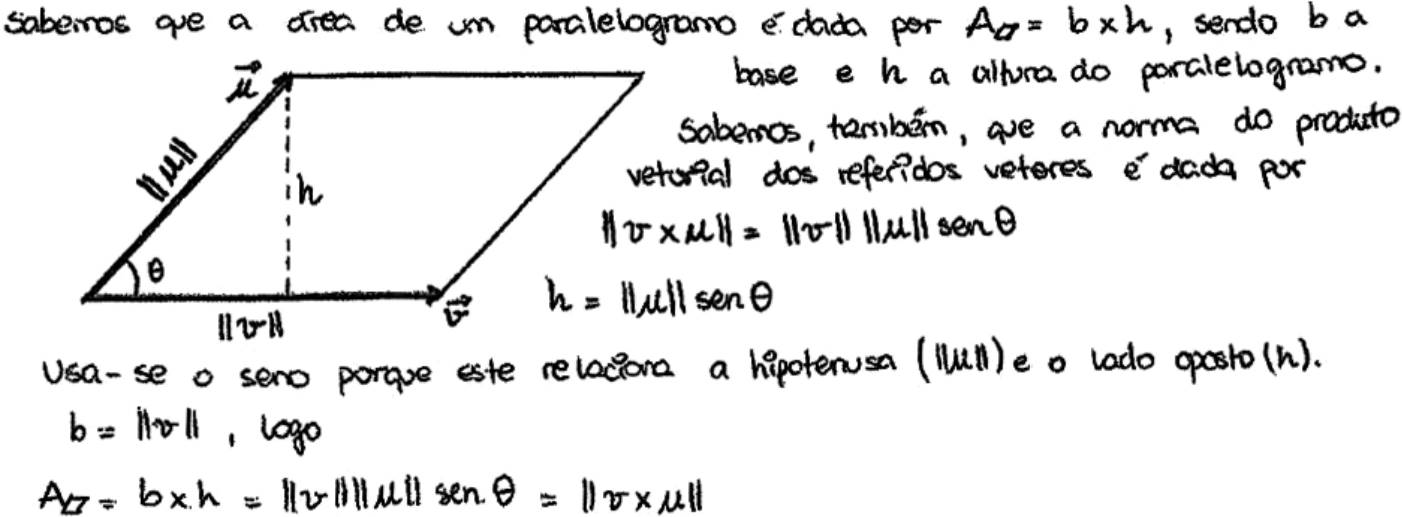 Sabemos que a área de um paralelogramo é dada por A▱ = b × h, sendo b a
base e h a altura do paralelogramo.
Sabemos, também, que a norma do produto
vetorial dos referidos vetores é dada por
‖v × u‖ = ‖v‖ ‖u‖ sen θ
h = ‖u‖ sen θ
u⃗
‖u‖
h
θ
‖v‖
v⃗
Usa-se o seno porque este relaciona a hipotenusa (‖u‖) e o lado oposto (h).
b = ‖v‖, logo
A▱ = b × h = ‖v‖‖u‖ sen θ = ‖v × u‖